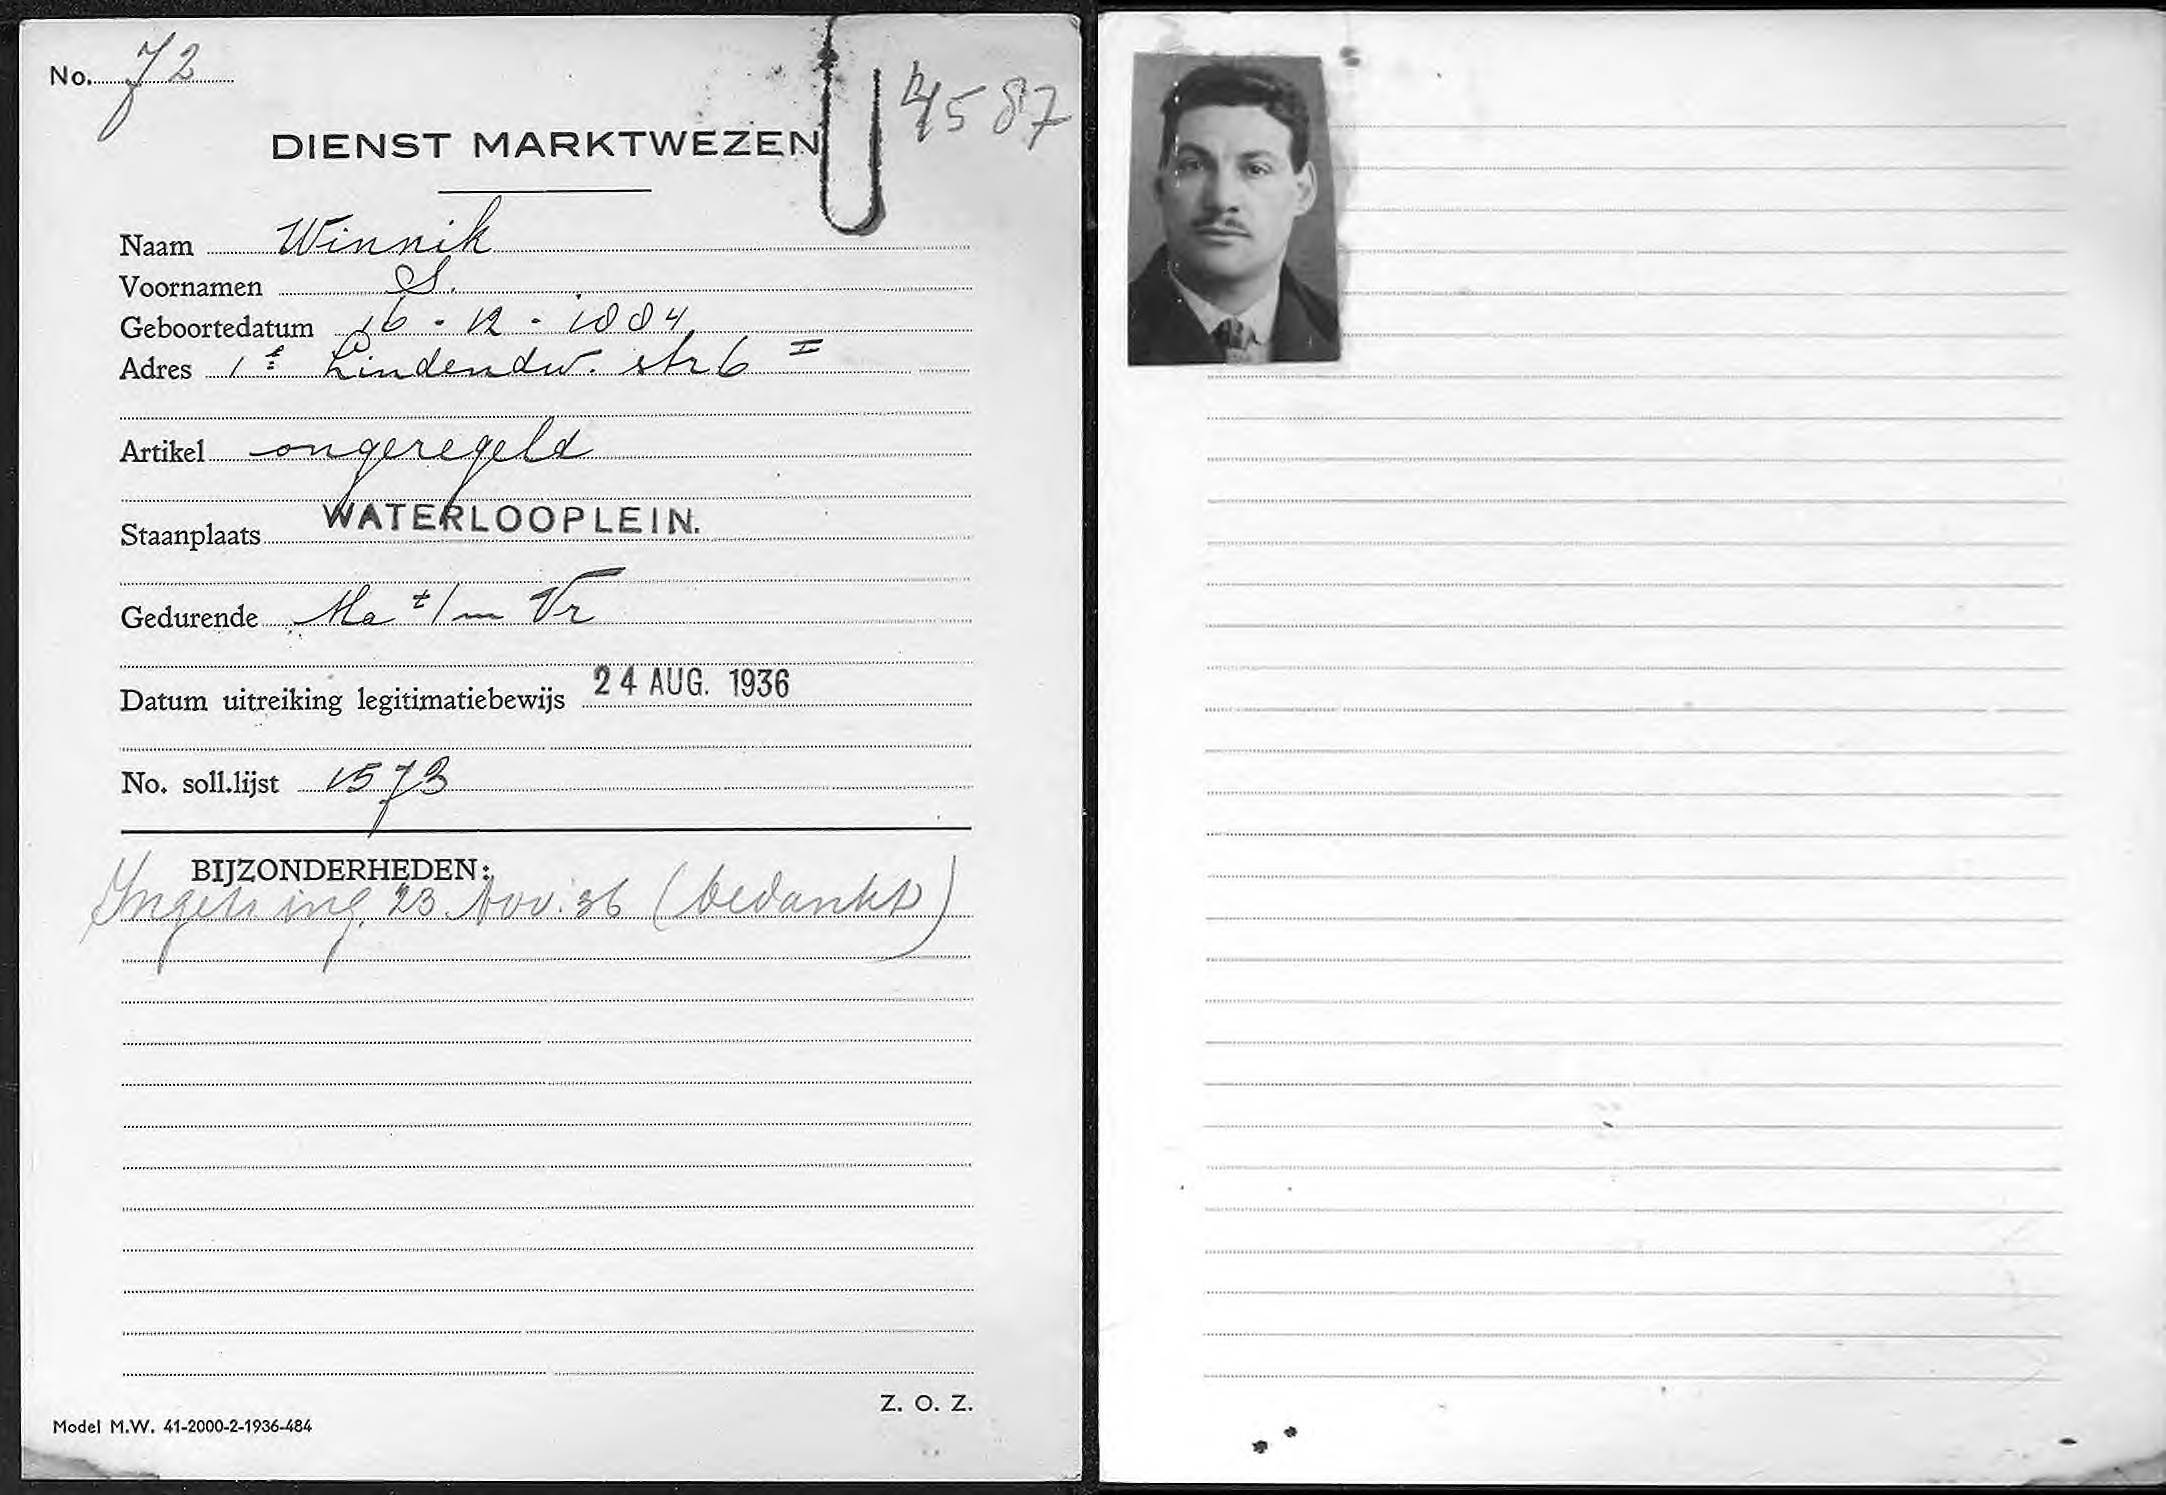 No. 72
4587
DIENST MARKTWEZEN
Naam Winnik
Voornamen S.
Geboortedatum 16 - 12 - 1884
Adres 1e Lindendw. str 6 I
Artikel ongeregeld
Staanplaats WATERLOOPLEIN.
Gedurende Ma t/m Vr
Datum uitreiking legitimatiebewijs 24 AUG. 1936
No. soll.lijst 1573
BIJZONDERHEDEN:
23 Nov. 36 (bedankt)
Z. O. Z.
Model M.W. 41-2000-2-1936-484